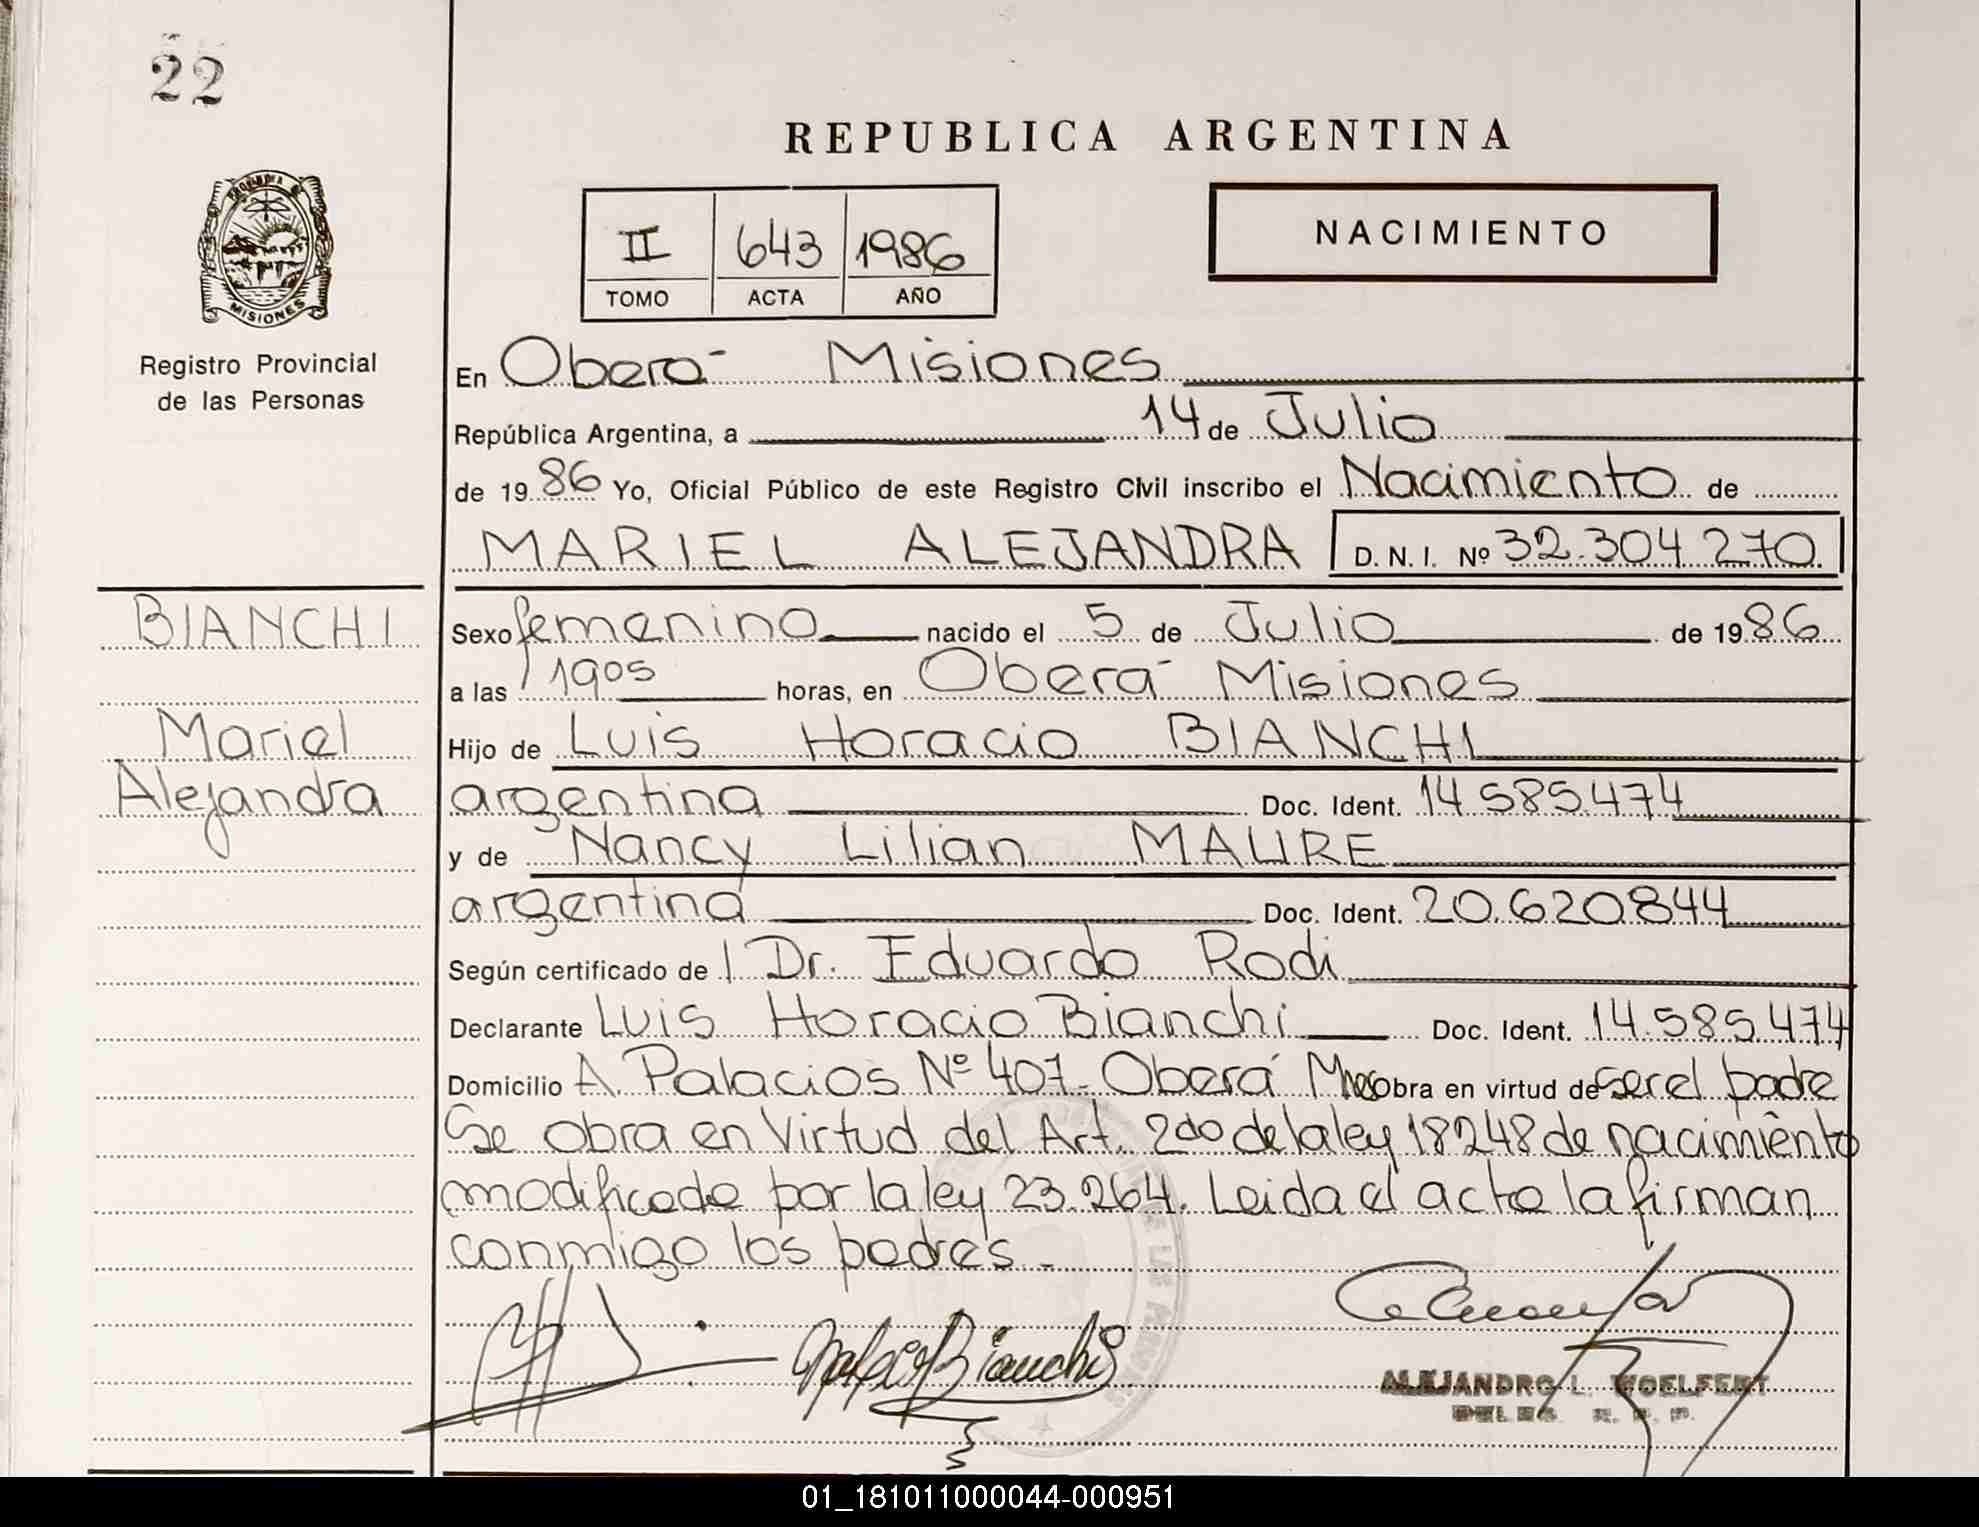 22
REPUBLICA ARGENTINA
II 643 1986
TOMO ACTA AÑO
NACIMIENTO
PROVINCIA DE
MISIONES
Registro Provincial
de las Personas
En Oberá Misiones
República Argentina, a 14 de Julio
de 1986 Yo, Oficial Público de este Registro Civil inscribo el Nacimiento de
MARIEL ALEJANDRA D. N. I. Nº 32.304.270
BIANCHI
Mariel
Alejandra
Sexo femenino nacido el 5 de Julio de 1986
a las 1905 horas, en Oberá Misiones
Hijo de Luis Horacio BIANCHI
argentina Doc. Ident. 14.585.474
y de Nancy Lilian MAURE
argentina Doc. Ident. 20.620.844
Según certificado de Dr. Eduardo Rodi
Declarante Luis Horacio Bianchi Doc. Ident. 14.585.474
Domicilio A. Palacios Nº 407 - Oberá Mnes obra en virtud de ser el padre
Se obra en Virtud del Art. 2do de la ley 18248 de nacimiento
modificada por la ley 23.264. Leida el acta la firman
conmigo los padres.-
Bianchi
ALEJANDRO L. WOELFERT
DELEG. R. P. P.
01_181011000044-000951